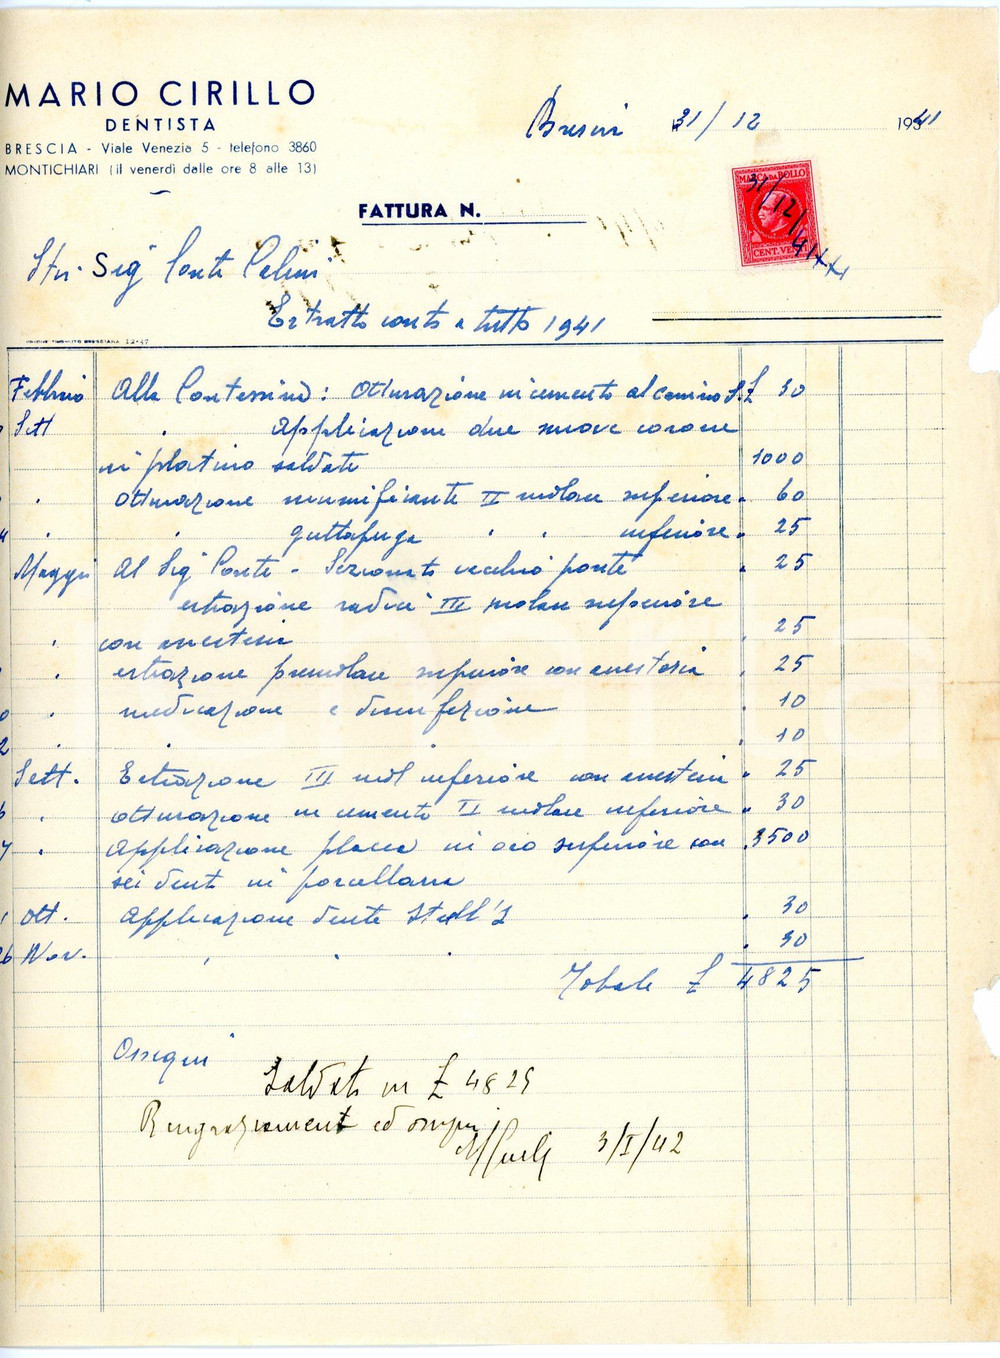 MARIO CIRILLO
DENTISTA
BRESCIA - Viale Venezia 5 - telefono 3860
MONTICHIARI (il venerdì dalle ore 8 alle 13)
Brescia 31/12 1941
MARCA DA BOLLO
31/12/41
CENT. VENTI
FATTURA N.
Sig Conte
Estratto conto a tutto 1941
Febbraio Alla Contessina: Otturazione in cemento al canino S. £ 30
Sett Applicazione due nuove corone
in platino saldate 1000
Otturazione mumificante II molare superiore " 60
" " guttaperga " " inferiore " 25
Maggio Al Sig Conte - Sezionato vecchio ponte " 25
estrazione radici III molare superiore
con anestesia " 25
estrazione premolare superiore con anestesia " 25
medicazione e disinfezione " 10
" " " 10
Sett. Estrazione III mol inferiore con anestesia " 25
otturazione in cemento II molare inferiore " 30
Applicazione placca in oro superiore con " 3500
sei denti in porcellana
Ott. Applicazione dente " 30
26 Nov. " " " " 30
Totale £ 4825
Ossequi
Saldato in £ 4825
Ringraziamenti ed ossequi
3/I/42